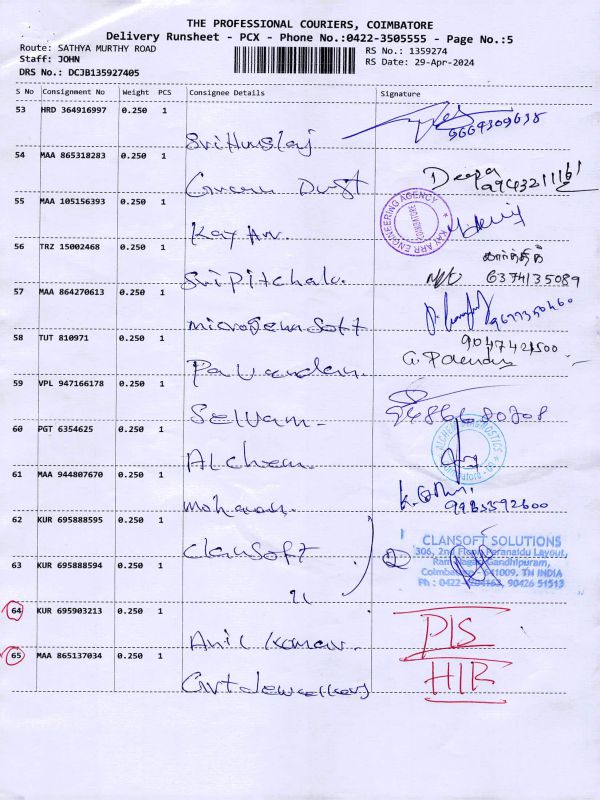 THE PROFESSIONAL COURIERS, COIMBATORE
Delivery Runsheet - PCX - Phone No.:0422-3505555 - Page No.:5
Route: SATHYA MURTHY ROAD
Staff: JOHN
DRS No.: DCJB135927405
RS No.: 1359274
RS Date: 29-Apr-2024
S No Consignment No Weight PCS Consignee Details Signature
53 HRD 364916997 0.250 1
54 MAA 865318283 0.250 1 Deepa
55 MAA 105156393 0.250 1 Kay Arr.
KAY ARR ENGINEERING AGENCY
COIMBATORE
56 TRZ 15002468 0.250 1 கார்த்திக்
6374135089
57 MAA 864270613 0.250 1 Microgenn Soft
58 TUT 810971 0.250 1 9047421500
59 VPL 947166178 0.250 1 Selvam.
9486680708
60 PGT 6354625 0.250 1 Alchem.
61 MAA 944807670 0.250 1 Mohanan.
62 KUR 695888595 0.250 1 Clansoft
CLANSOFT SOLUTIONS
306, 2nd Floor, Peranaidu Layout,
Ram Nagar, Gandhipuram,
Coimbatore - 641009. TN INDIA
Ph : 0422- 90426 51513
63 KUR 695888594 0.250 1 "
64 KUR 695903213 0.250 1 Anil Kumar.
PIS
65 MAA 865137034 0.250 1 Jewellery
HIR